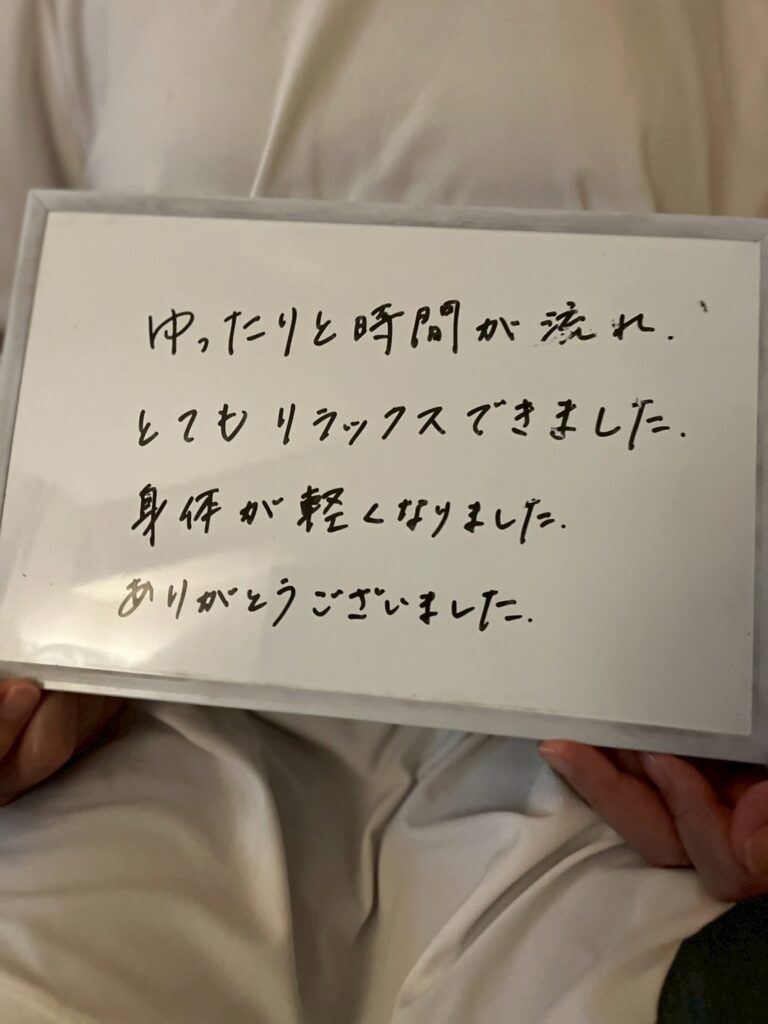 ゆったりと時間が流れ.
とてもリラックスできました.
身体が軽くなりました.
ありがとうございました.